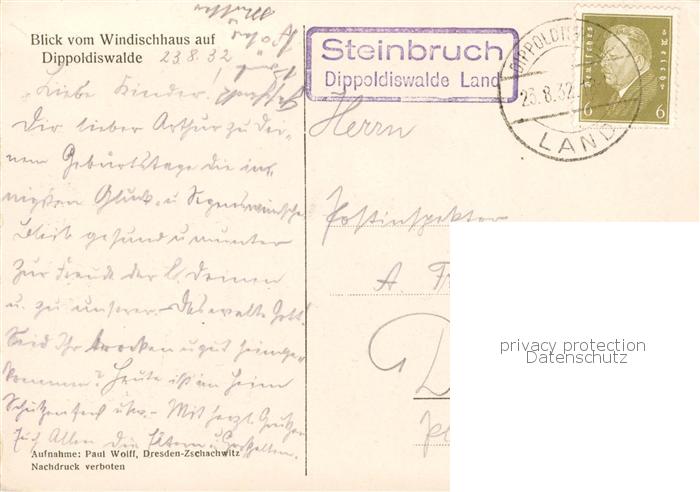 Blick vom Windischhaus auf
Dippoldiswalde 23.8.32
Liebe Kinder!
Dir lieber Arthur zu Dei-
nem Geburtstage die in-
nigsten Glück- u Segenswünsche
Bleib gesund u munter
zur Freude der l. Deinen
u. zu unserer. Das walte Gott!
Seid Ihr trocken u gut heimge-
kommen? Heute ist im Heim
Schützenfest usw. Mit herzl. Grüßen
Euch Allen die
Aufnahme: Paul Wolff, Dresden-Zschachwitz
Nachdruck verboten
Steinbruch
Dippoldiswalde Land
DIPPOLDIS
23.8.32
LAND
Deutsches Reich
6 6
Herrn
Postinspektor
A F
D
privacy protection
Datenschutz